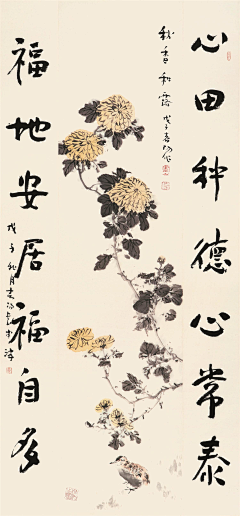 心田种德心常泰
秋香和露
戊子
福地安居福自多
戊子秋月